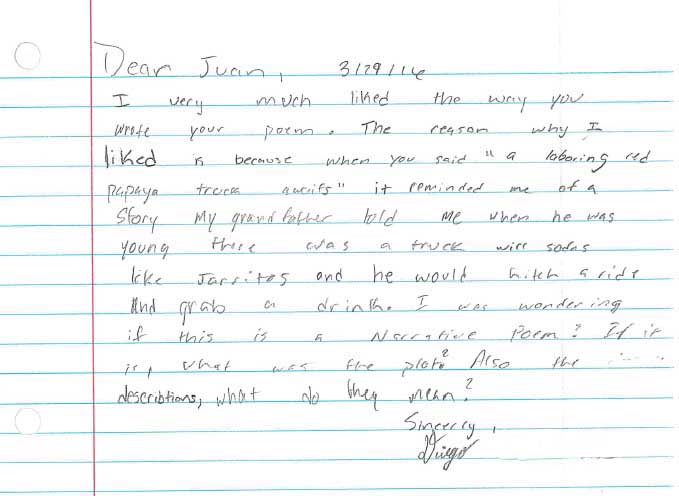 Dear Juan, 3/29/16
I very much liked the way you
wrote your poem. The reason why I
liked is because when you said "a laboring red
papaya truck awaits" it reminded me of a
Story my grandfather told me when he was
young there was a truck with sodas
like Jarritos and he would hitch a ride
And grab a drink. I was wondering
if this is a Narrative Poem? If it
is, what was the plot? Also the
describtions, what do they mean?
Sincerly,
Diego